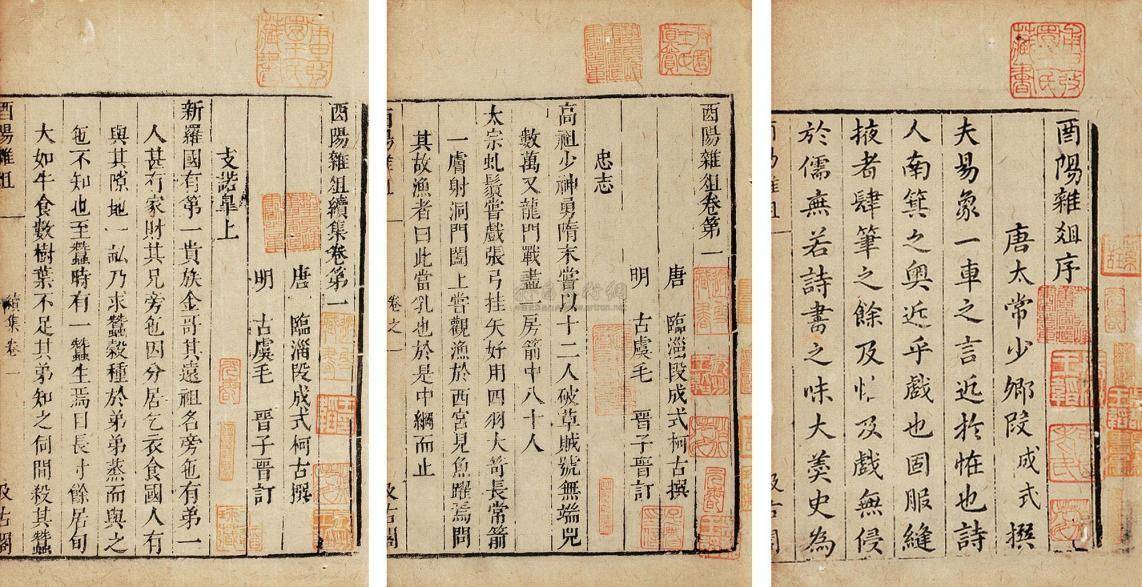 酉陽雜俎序
唐太常少卿段成式撰
夫易象一車之言近於怪也詩
人南箕之奧近乎戲也固服縫
掖者肆筆之餘及怪及戲無侵
於儒無若詩書之味大羹史為
酉陽雜俎卷第一
唐 臨淄段成式柯古撰
明 古虞毛 晉子晉訂
忠志
高祖少神勇隋末嘗以十二人破草賊號無端兒
數萬又龍門戰盡一房箭中八十人
太宗虬鬚嘗戲張弓挂矢好用四羽大笴長常箭
一膚射洞門闔上嘗觀漁於西宮見魚躍焉問
其故漁者曰此當乳也於是中網而止
酉陽雜俎
卷之一
汲古閣
酉陽雜俎續集卷第一
唐 臨淄段成式柯古撰
明 古虞毛 晉子晉訂
支諾皐上
新羅國有第一貴族金哥其遠祖名旁㐌有弟一
人甚有家財其兄旁㐌因分居乞衣食國人有
與其隙地一畝乃求蠶穀種於弟弟蒸而與之
㐌不知也至蠶時有一蠶生焉日長寸餘居旬
大如牛食數樹葉不足其弟知之伺間殺其蠶
酉陽雜俎
續集卷一
汲古閣